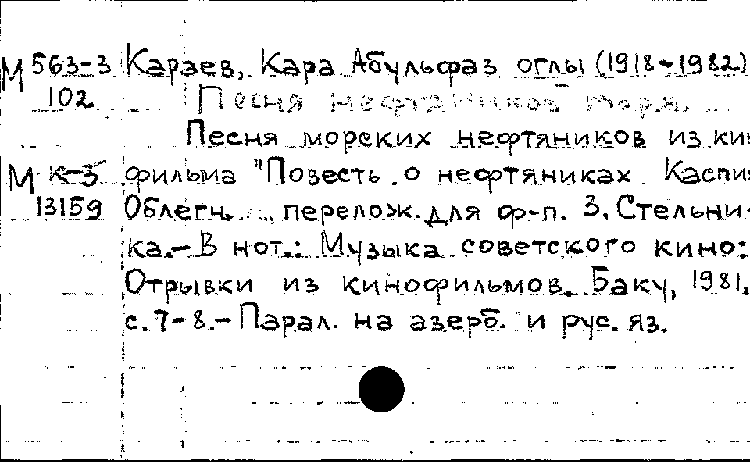 М 563-3 Караев, Кара Абульфаз оглы (1918-1982)
102 Песня нефтяников моря.
Песня морских нефтяников из ки
М К-3 фильма "Повесть о нефтяниках Каспи
13159 Облегч. перелож. для ф-п. З. Стельни-
ка.- В нот.: Музыка советского кино:
Отрывки из кинофильмов. Баку, 1981,
с. 7-8.- Парал. на азерб. и рус. яз.